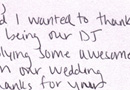 d I wanted to thank
being our DJ
lying some awesome
n our wedding
hanks for your